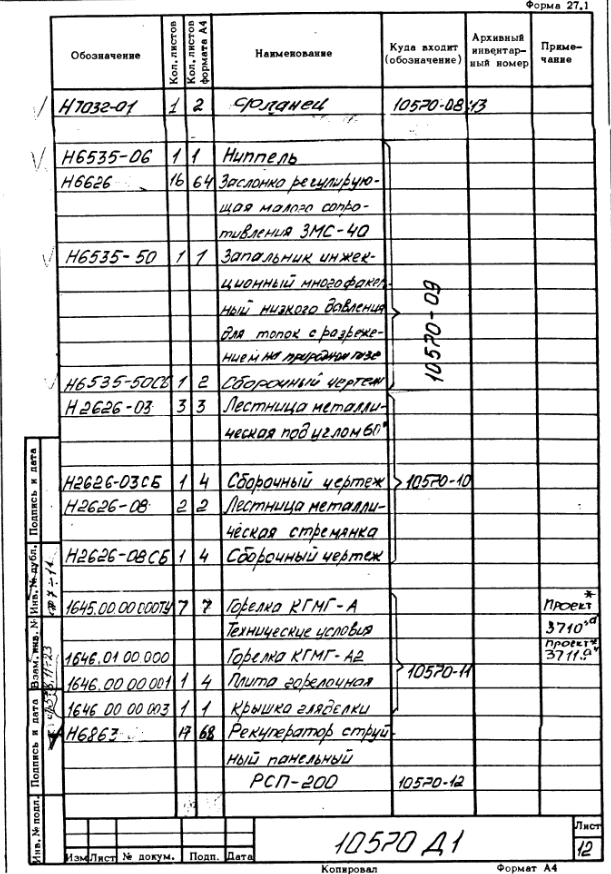 Форма 27.1
Обозначение Кол. листов Кол. листов формата А4 Наименование Куда входит (обозначение) Архивный инвентарный номер Примечание
Н7032-01 1 2 Фланец 10570-08
Н6535-06 1 1 Ниппель
Н6626 16 64 Заслонка регулирую-
щая малого сопро-
тивления ЗМС-40
Н6535-50 1 1 Запальник инжек-
ционный многофакел-
ный низкого давления
для топок с разреже-
нием на природном газе
10570-09
Н6535-50СБ 1 2 Сборочный чертеж
Н2626-03 3 3 Лестница металли-
ческая под углом 60°
Н2626-03СБ 1 4 Сборочный чертеж 10570-10
Н2626-08 2 2 Лестница металли-
ческая стремянка
Н2626-08СБ 1 4 Сборочный чертеж
1645.00 00 000ТУ 7 7 Горелка КГМГ-А Проект*
Технические условия 3710
1646.01 00.000 Горелка КГМГ-А2 проект*
3711
1646.00 00 001 1 4 Плита горелочная 10570-11
1646 00 00 003 1 1 Крышка гляделки
Н6863 17 68 Рекуператор струй-
ный панельный
РСП-200 10570-12
Инв. № подл. Подпись и дата Взам. инв. № Инв. № дубл. Подпись и дата
10570 Д1 Лист
12
Изм Лист № докум. Подп. Дата
Копировал Формат А4